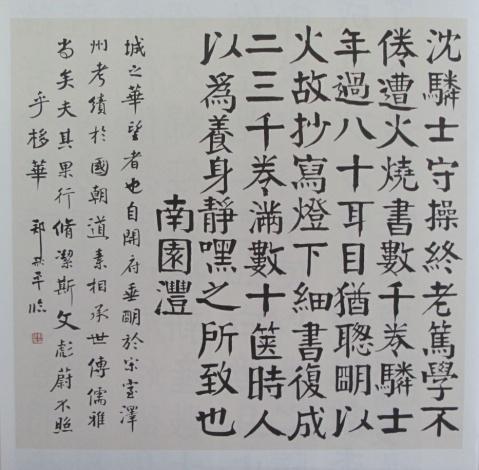 沈驎士守操終老篤學不
倦遭火燒書數千卷驎士
年過八十耳目猶聰明以
火故抄寫燈下細書復成
二三千卷滿數十篋時人
以爲養身靜嘿之所致也
南園灃
城之華望者也自開府垂明於宋室澤
州考績於國朝道素相承世傳儒雅
尚矣夫其果行脩潔斯文彪蔚不照
乎移華 平臨